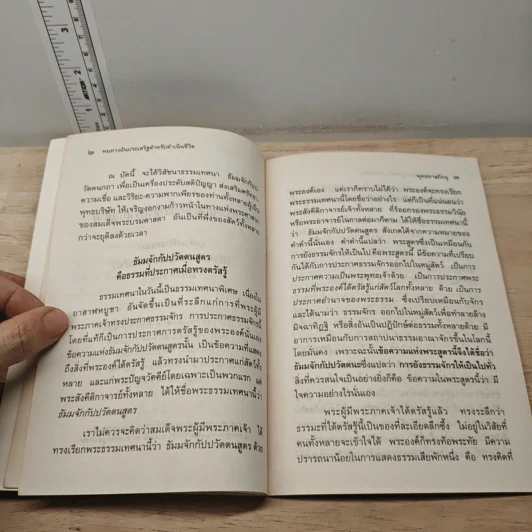 ๒ หนทางอันประเสริฐสำหรับดำเนินชีวิต
ณ บัดนี้ จะได้วิสัชนาธรรมเทศนา ธัมมจักกัปป-
วัตตนกถา เพื่อเป็นเครื่องประดับสติปัญญา ส่งเสริมศรัทธา
ความเชื่อ และวิริยะ-ความพากเพียรของท่านทั้งหลายผู้เป็น
พุทธบริษัท ให้เจริญงอกงามก้าวหน้าในทางแห่งพระศาสนา
ของสมเด็จพระบรมศาสดา อันเป็นที่พึ่งของสัตว์ทั้งหลาย
กว่าจะยุติลงด้วยเวลา
ธัมมจักกัปปวัตตนสูตร
คือธรรมที่ประกาศเมื่อทรงตรัสรู้
ธรรมเทศนาในวันนี้เป็นธรรมเทศนาพิเศษ เนื่องใน
อาสาฬหบูชา อันจัดขึ้นเป็นที่ระลึกแก่การที่พระผู้มี
พระภาคเจ้าทรงประกาศธรรมจักร การประกาศธรรมจักรนี้
โดยที่แท้ก็เป็นการประกาศการตรัสรู้ของพระองค์นั่นเอง
ข้อความแห่งธัมมจักกัปปวัตตนสูตรนั้น เป็นข้อความที่แสดง
ถึงสิ่งที่พระองค์ได้ตรัสรู้ แล้วทรงนำมาประกาศแก่สัตว์ทั้ง
หลาย และแก่พระปัญจวัคคีย์โดยเฉพาะเป็นพวกแรก แต่
พระสังคีติกาจารย์ทั้งหลาย ได้ให้ชื่อพระธรรมเทศนานี้ว่า
ธัมมจักกัปปวัตตนสูตร
เราไม่ควรจะคิดว่าสมเด็จพระผู้มีพระภาคเจ้า ได้
ทรงเรียกพระธรรมเทศนานี้ว่า ธัมมจักกัปปวัตตนสูตร ด้วย
พุทธทาสภิกขุ ๓
พระองค์เอง แต่เราก็ทราบไม่ได้ว่า พระองค์จะทรงเรียก
พระธรรมเทศนานี้โดยชื่อว่าอย่างไร แต่ก็เป็นที่แน่นอนว่า
พระสังคีติกาจารย์เจ้าทั้งหลาย ที่ร้อยกรองพระธรรมวินัย
หรือพระอาจารย์ในกาลต่อมาก็ตาม ได้ให้ชื่อพระสูตรนี้ว่า
ธัมมจักกัปปวัตตนสูตร สังเกตได้จากความหมายของ
คำคำนี้นั่นเอง คำคำนี้แปลว่า พระสูตรซึ่งเป็นเหมือนกับ
การยังธรรมจักรให้เป็นไป คือพระสูตรนี้ มีข้อความที่เปรียบ
กันได้กับการประกาศธรรมจักรออกไปในหมู่สัตว์ เป็นการ
ประกาศความเป็นพระพุทธเจ้าด้วย เป็นการประกาศพระ
ธรรมที่พระองค์ได้ตรัสรู้แก่สัตว์โลกทั้งหลาย ด้วย เป็นการ
ประกาศอำนาจของพระธรรม ซึ่งเปรียบเหมือนกับจักร
และได้นามว่า ธรรมจักร ออกไปในหมู่สัตว์เพื่อทำลายล้าง
มิจฉาทิฏฐิ หรือสิ่งอันเป็นปฏิปักษ์ต่อธรรมทั้งหลายด้วย มี
อาการเหมือนกับการสถาปนาธรรมอาณาจักรขึ้นในโลกนี้
โดยมั่นคง เพราะฉะนั้นข้อความแห่งพระสูตรนี้จึงได้ชื่อว่า
ธัมมจักกัปปวัตตนะซึ่งแปลว่า การยังธรรมจักรให้เป็นไปทั่ว
สิ่งที่ควรสนใจเป็นอย่างยิ่งก็คือ ข้อความในพระสูตรนี้ว่า มี
ใจความอย่างไรนั่นเอง
พระผู้มีพระภาคเจ้าได้ตรัสรู้แล้ว ทรงระลึกว่า
ธรรมะที่ได้ตรัสรู้นี้เป็นของที่ละเอียดลึกซึ้ง ไม่อยู่ในวิสัยที่
คนทั้งหลายจะเข้าใจได้ พระองค์ก็ทรงท้อพระทัย มีความ
ปรารถนาน้อยในการแสดงธรรมเสียพักหนึ่ง คือ ทรงคิดที่